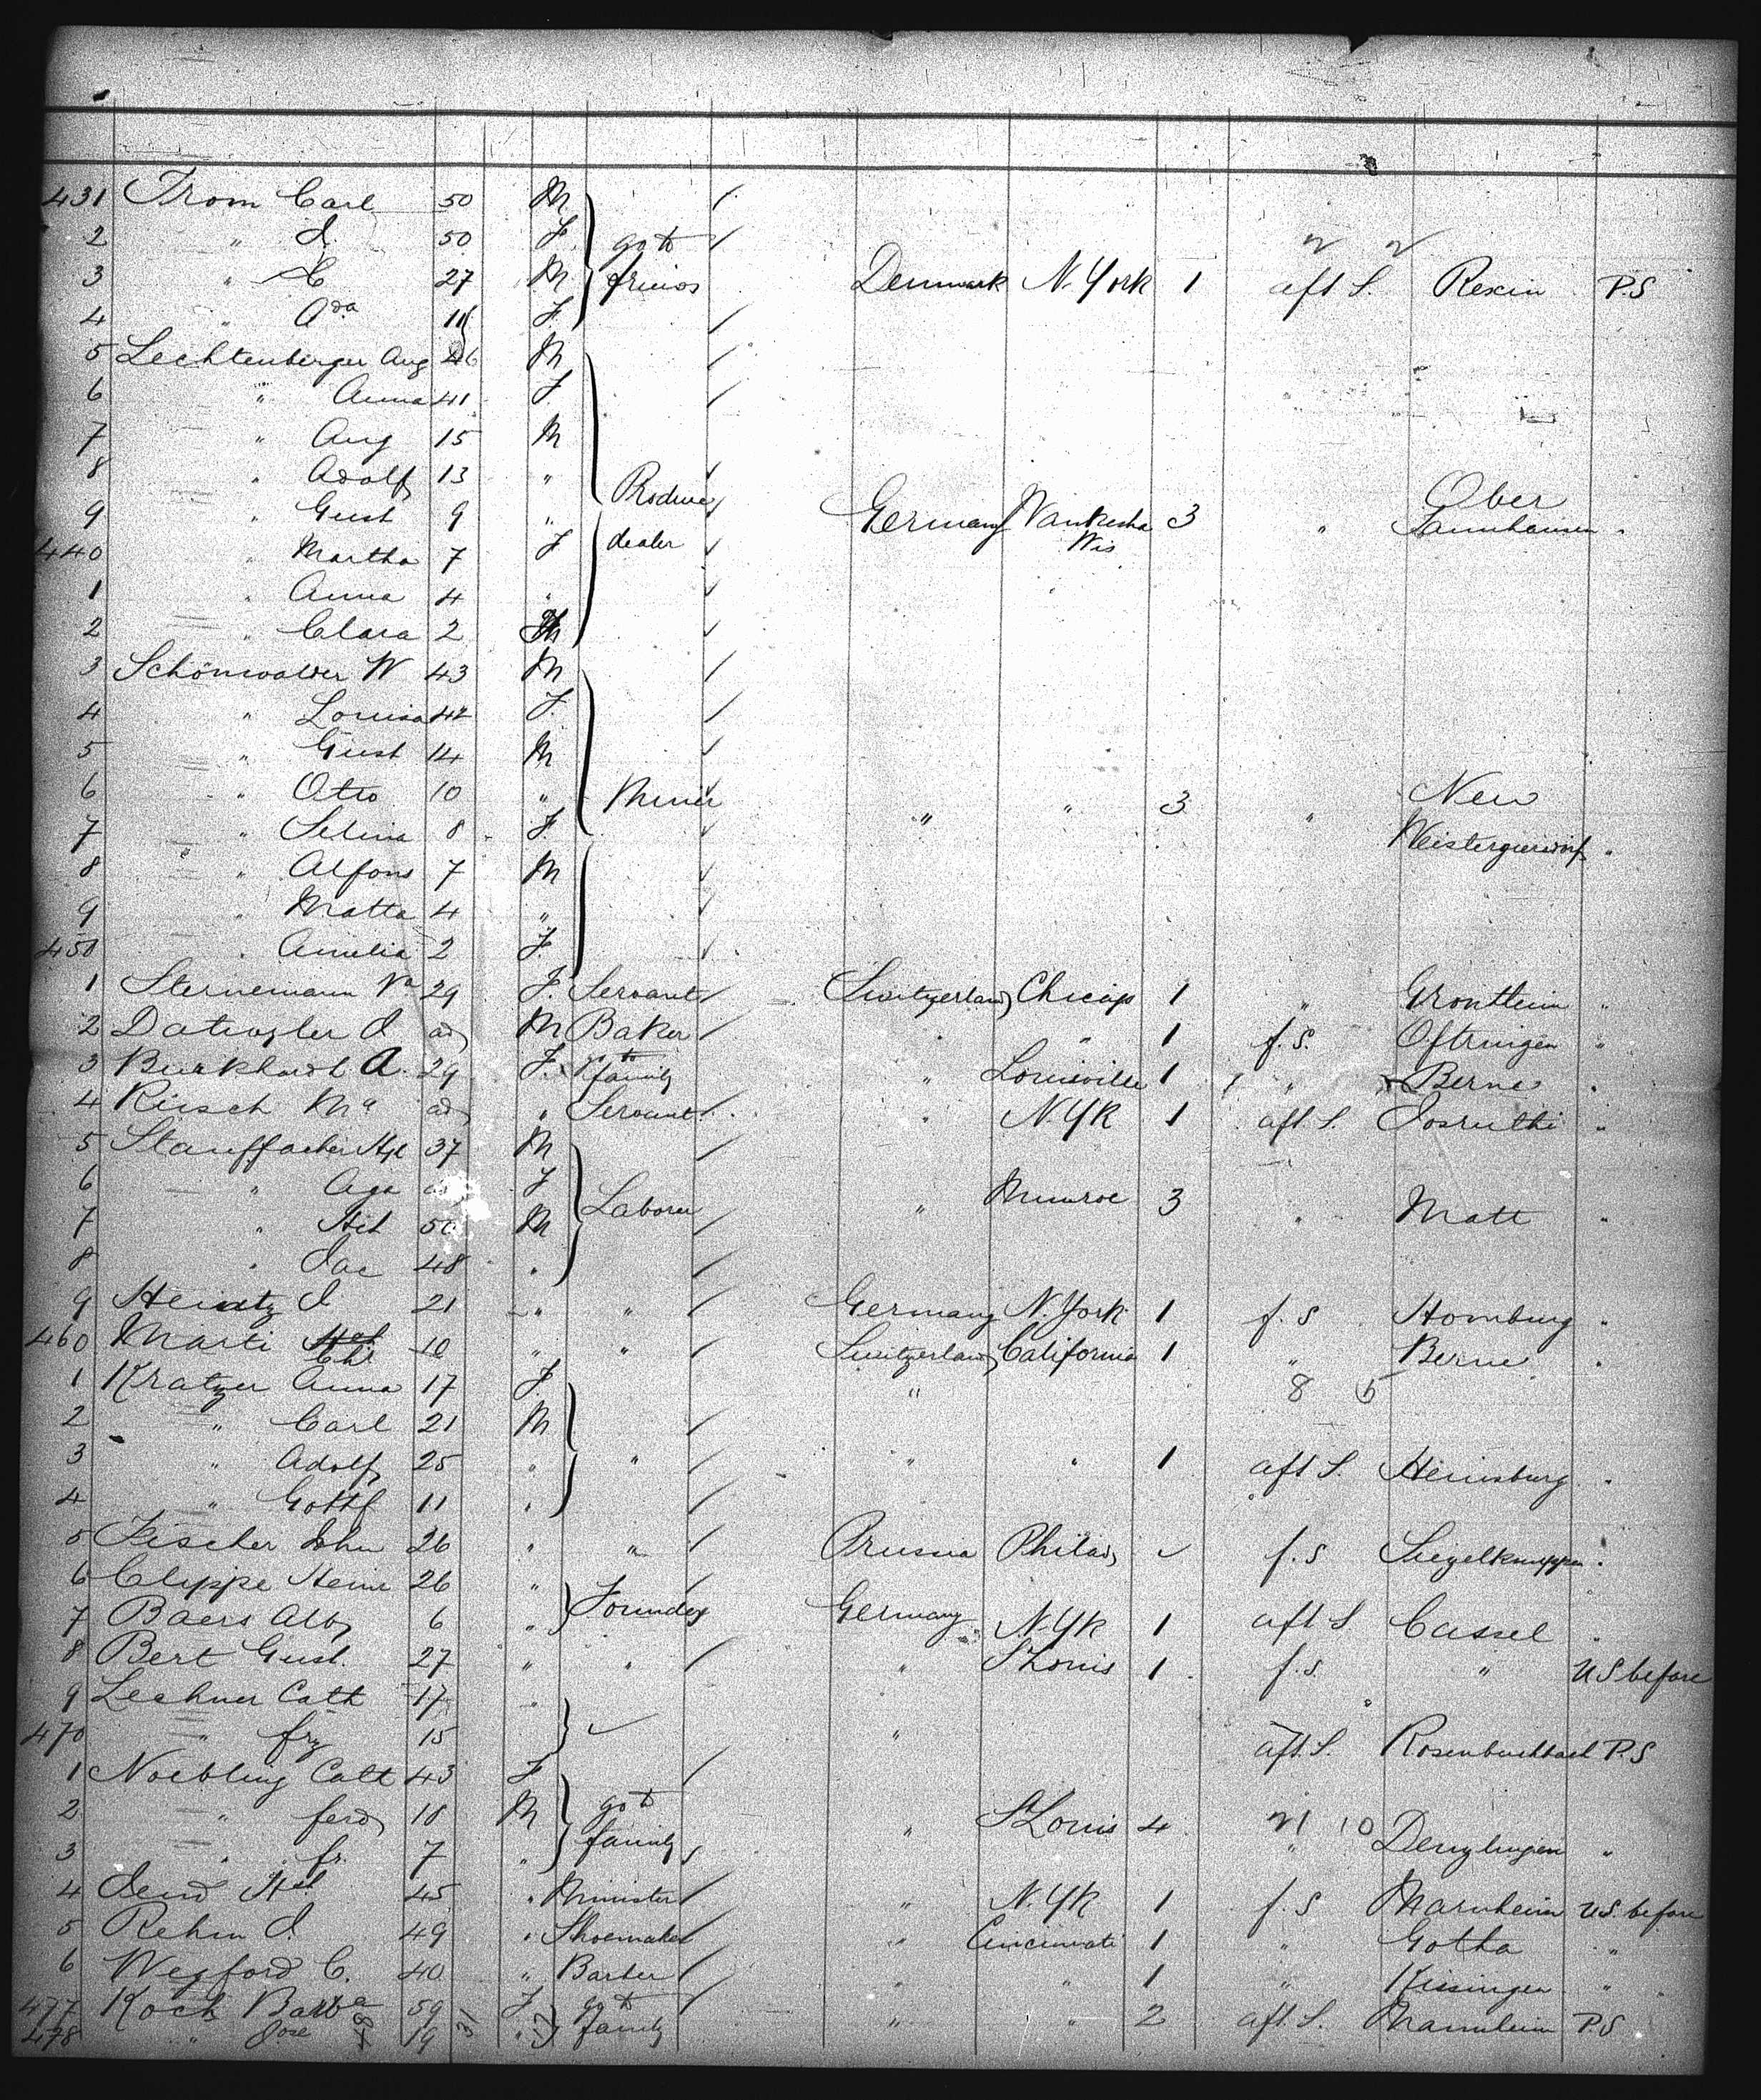 431 From Carl 50 M
2 " J. 50 F go to
3 " C 27 M friends Denmark N. York 1 aft S. Rexin P.S
4 " Ada 11 F
5 Lechtenberger Aug 46 M
6 " Anna 41 F
7 " Aug 15 M
8 " Adolf 13 " Produce Ober
9 " Gust 9 " Germany Waukesha 3 " Tannhausen "
440 " Martha 7 F dealer Wis
1 " Anna 4 "
2 " Clara 2
3 Schönwalder W 43 M
4 " Louisa 42 F.
5 " Gust 14 M
6 " Otto 10 " Miner " " 3 " New
7 " Selina 8 F. Weistergiersdorf "
8 " Alfons 7 M
9 " Matta 4 "
450 " Amelia 2 F.
1 Sternemann 29 F. Servant Switzerland Chicago 1 " Grontheim "
2 J ad M Baker " " 1 f. S. Oftringen "
3 Burkhardt A. 29 F. to family " Louisville 1 " Berne "
4 Rüsch Ma ad " Servant " N.YK 1 aft. S. "
5 Stauffacher 37 M
6 " Aga F Laborer " Munroe 3 " Matt "
7 " 50 M
8 " Jac 48 "
9 Heintz J 21 " " Germany N. York 1 f. S Homburg "
460 Marti Chr 10 " " Switzerland California 1 " Berne "
1 Kratzer Anna 17 F. " 8 5
2 " Carl 21 M
3 " Adolf 25 " " " " 1 aft S. Heinsburg "
4 " Gottf 11 "
5 Fischer John 26 " " Prussia Philad f. S "
6 Clippe Heinr 26 " Founder
7 Baers Alb 6 " Germany N.YK 1 aft S Cassel "
8 Bert Gust. 27 " " " St Louis 1 f. s. " U S before
9 Lechner Cath 17 "
470 " frz 15 " aft. S. Rosenbuchbach P.S
1 Noebling Cath 43 F
2 " ferd 18 M go to " St Louis 4 21 10
3 " fr. 7 " family " Denzlingen "
4 45 " Minister " N.YK 1 f. S Marnheim U.S. before
5 Rehm J. 49 " Shoemaker " Cincinnati 1 " Gotha "
6 Wegford C. 40 " Barber " " 1 " Kissingen "
477 Koch Barba 59 F go to " " 2 aft. S. Mannheim P.S
478 " Jose 19 " family